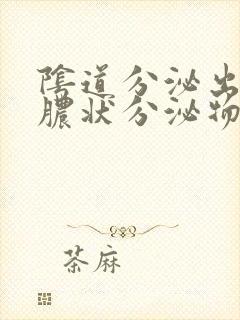 陰道分泌出
膿狀分泌物
茶麻